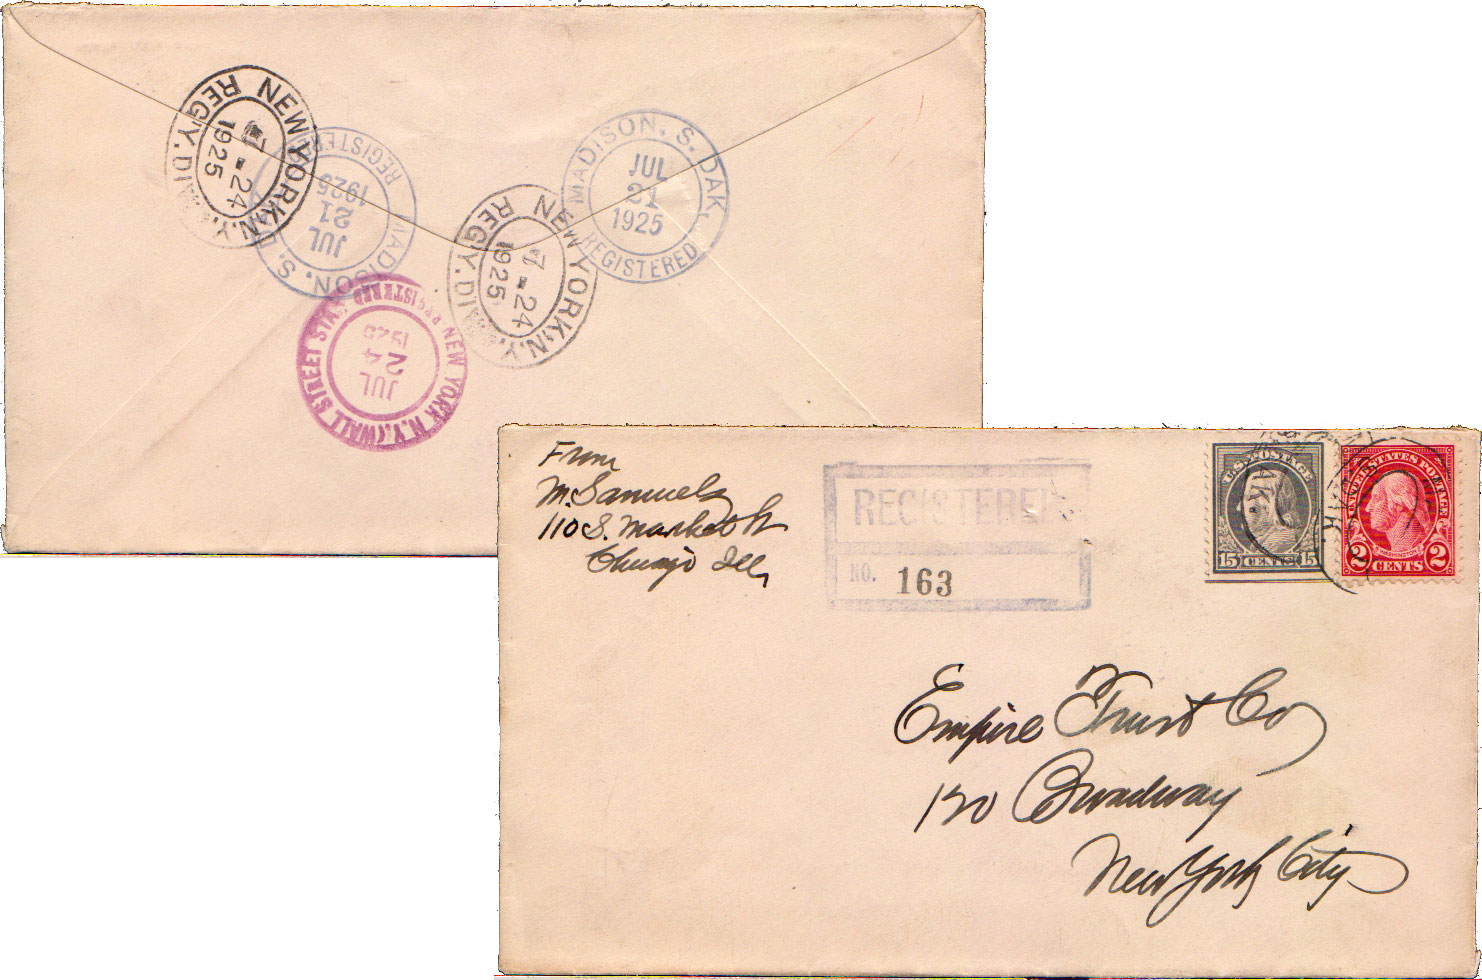 NEW YORK, N.Y.
REG'Y. DIV.
7-24
1925
MADISON, S. DAK.
REGISTERED
JUL
21
1925
NEW YORK, N.Y.
REG'Y. DIV.
7-24
1925
MADISON, S. DAK.
JUL
21
1925
REGISTERED
NEW YORK N.Y. (WALL STREET STA.)
REGISTERED
JUL
24
1925
From
M. Samuels
110 S. Market St
Chicago Ill,
REGISTERED
NO. 163
U.S. POSTAGE
15 CENTS 15
UNITED STATES POSTAGE
WASHINGTON
2 CENTS 2
Empire Trust Co
120 Broadway
New York City